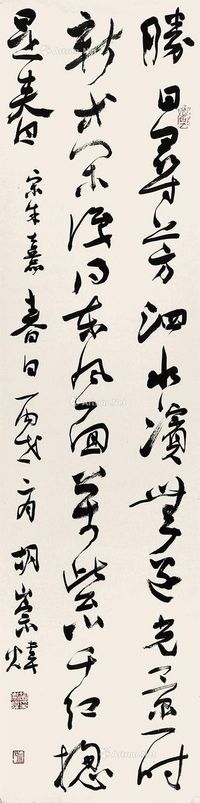 勝日尋芳泗水濱無邊光景一時
新等閒識得東風面萬紫千紅總
是春 宋朱熹春日 丙戌 胡崇煒